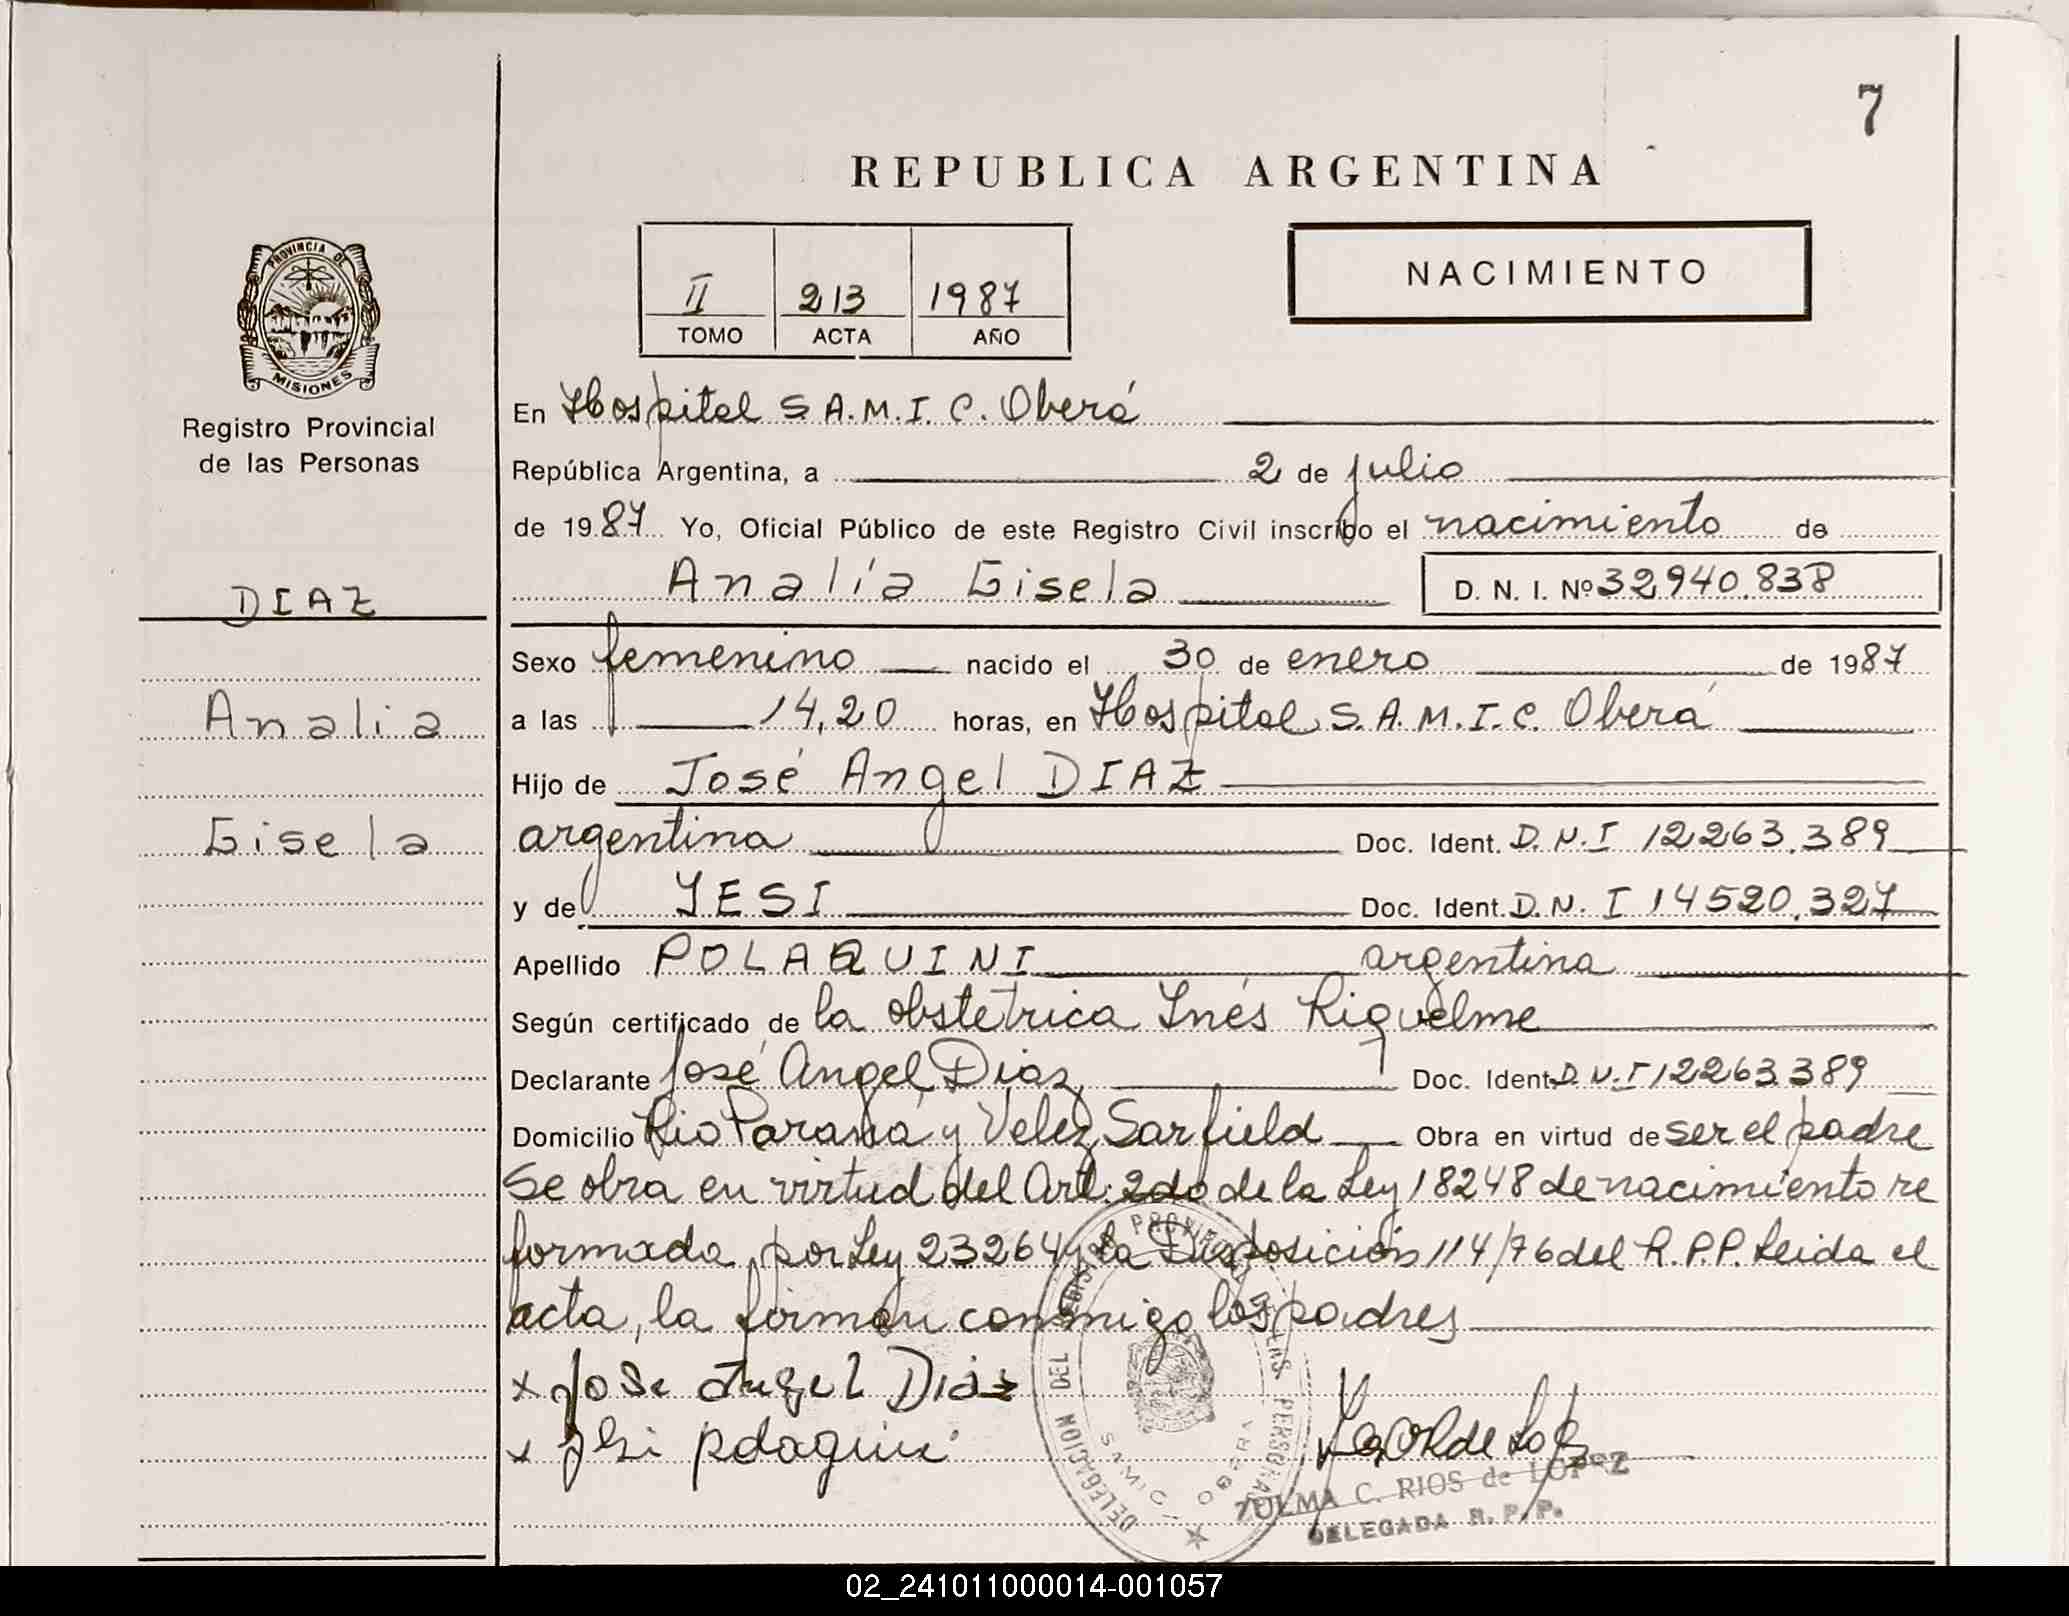 7
REPUBLICA ARGENTINA
II 213 1987
TOMO ACTA AÑO
NACIMIENTO
PROVINCIA DE
MISIONES
Registro Provincial
de las Personas
DIAZ
Analia
Gisela
En Hospital S.A.M.I.C. Oberá
República Argentina, a 2 de julio
de 1987 Yo, Oficial Público de este Registro Civil inscribo el nacimiento de
Analía Gisela D. N. I. Nº 32940.838
Sexo femenino nacido el 30 de enero de 1987
a las 14,20 horas, en Hospital S.A.M.I.C. Oberá
Hijo de José Angel DIAZ
argentina Doc. Ident. D.N.I 12263.389
y de YESI Doc. Ident. D.N.I 14520.327
Apellido POLAQUINI argentina
Según certificado de la obstetrica Inés Riquelme
Declarante José Angel Diaz Doc. Ident. D.N.I 12263389
Domicilio Rio Paraná y Velez Sarfield Obra en virtud de ser el padre
Se obra en virtud del Art. 2do de la Ley 18248 de nacimiento re
formada por Ley 23264 y la Disposición 114/76 del R.P.P. Leida el
acta, la firman conmigo los padres
x Jose Angel Diaz
x Jesi Polaquini
DELEGACION DEL REGISTRO PROVINCIAL DE LAS PERSONAS
SAMIC - OBERA
ZULMA C. RIOS de LOPEZ
DELEGADA R.P.P.
02_241011000014-001057